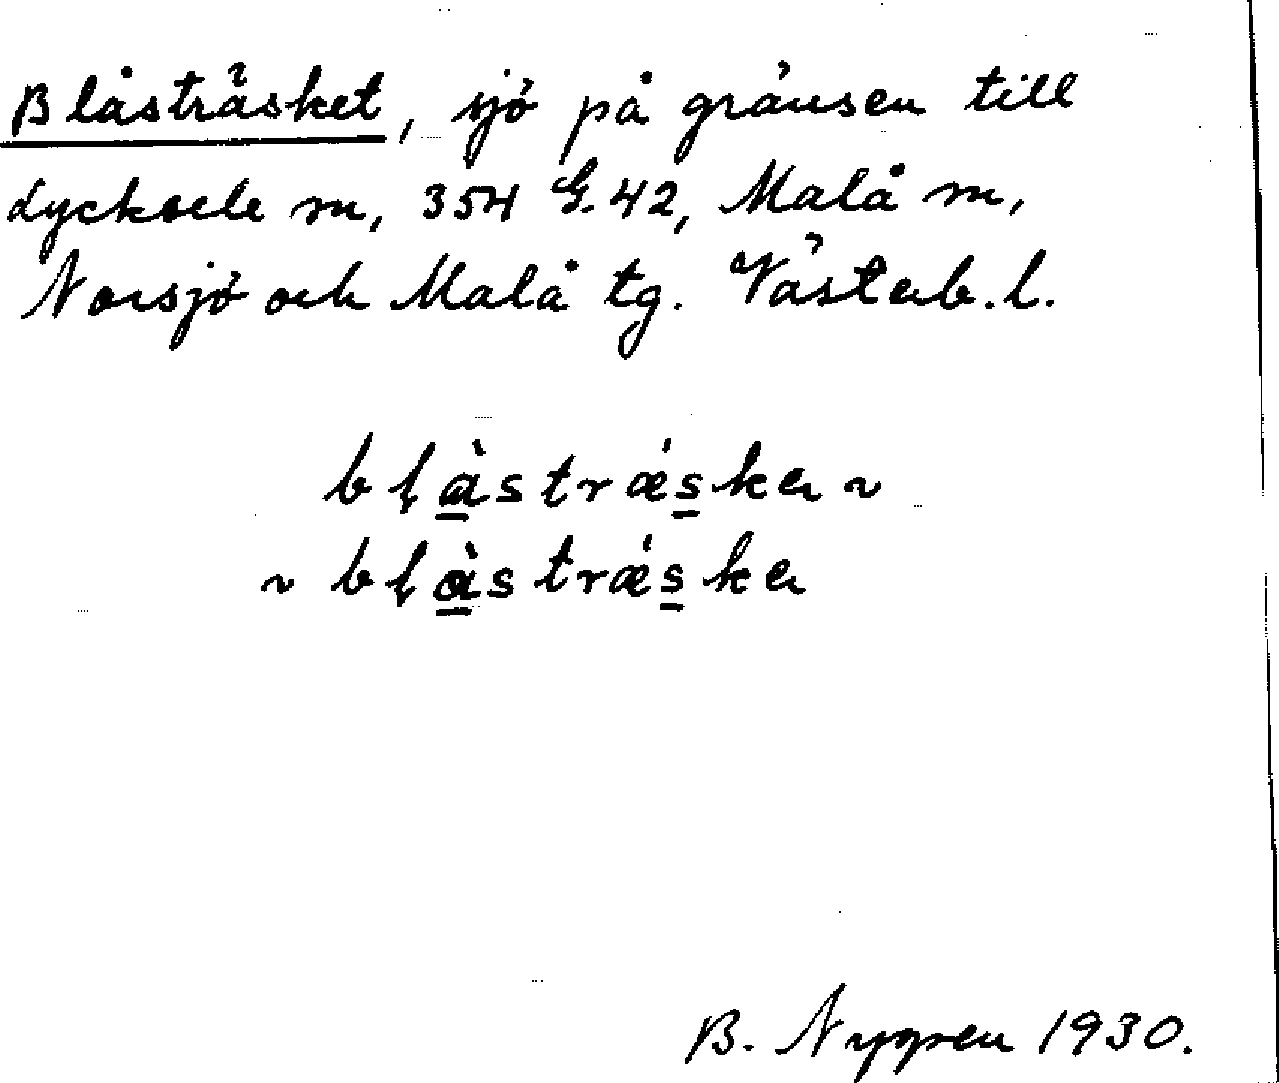 Blåsträsket, sjö på gränsen till
Lycksele sn, 354 G. 42, Malå sn,
Norsjö och Malå tg. Västerb. l.
blàstrǽska ~
~ blàstrǽska
B. Nygren 1930.